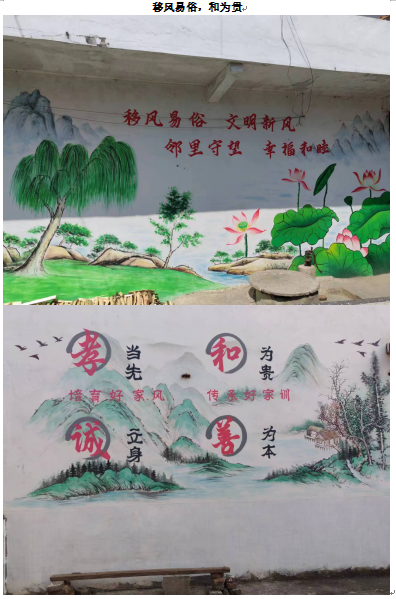 移风易俗，和为贵
移风易俗 文明新风
邻里守望 幸福和睦
孝当先 和为贵
培育好家风 传承好家训
诚立身 善为本